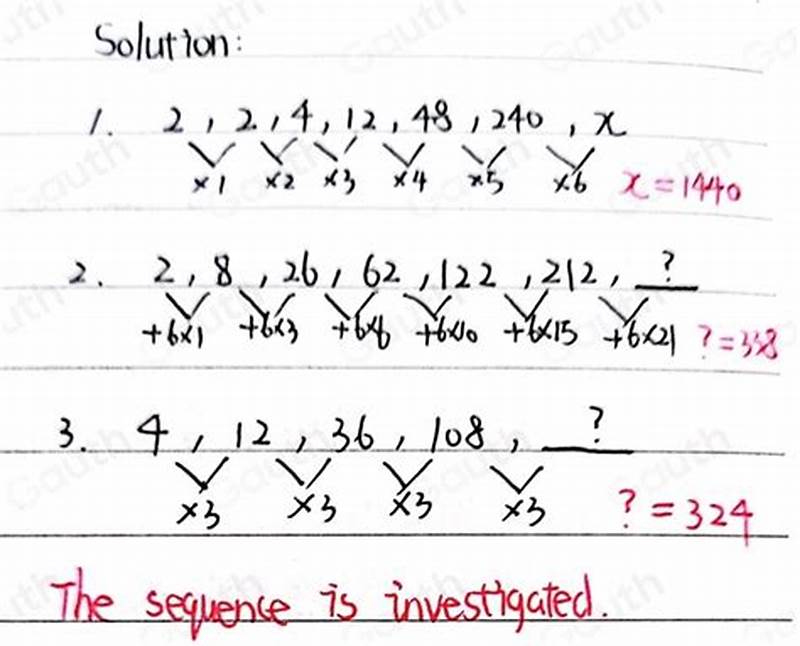 Solution:
1. 2, 2, 4, 12, 48, 240, x
×1 ×2 ×3 ×4 ×5 ×6 x=1440
2. 2, 8, 26, 62, 122, 212, ?
+6×1 +6×3 +6×6 +6×10 +6×15 +6×21 ?=338
3. 4, 12, 36, 108, ?
×3 ×3 ×3 ×3 ?=324
The sequence is investigated.